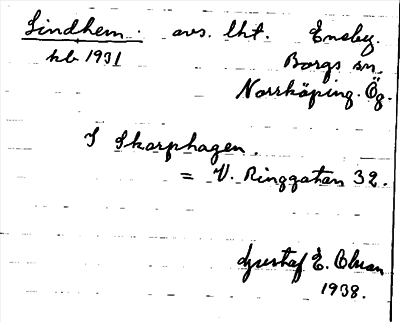 Lindhem. avs. lht. Eneby.
kb 1931 Borgs sn.
Norrköping. Ög.
I Skarphagen.
= V. Ringgatan 32.
Gustaf E. Olsson
1938.